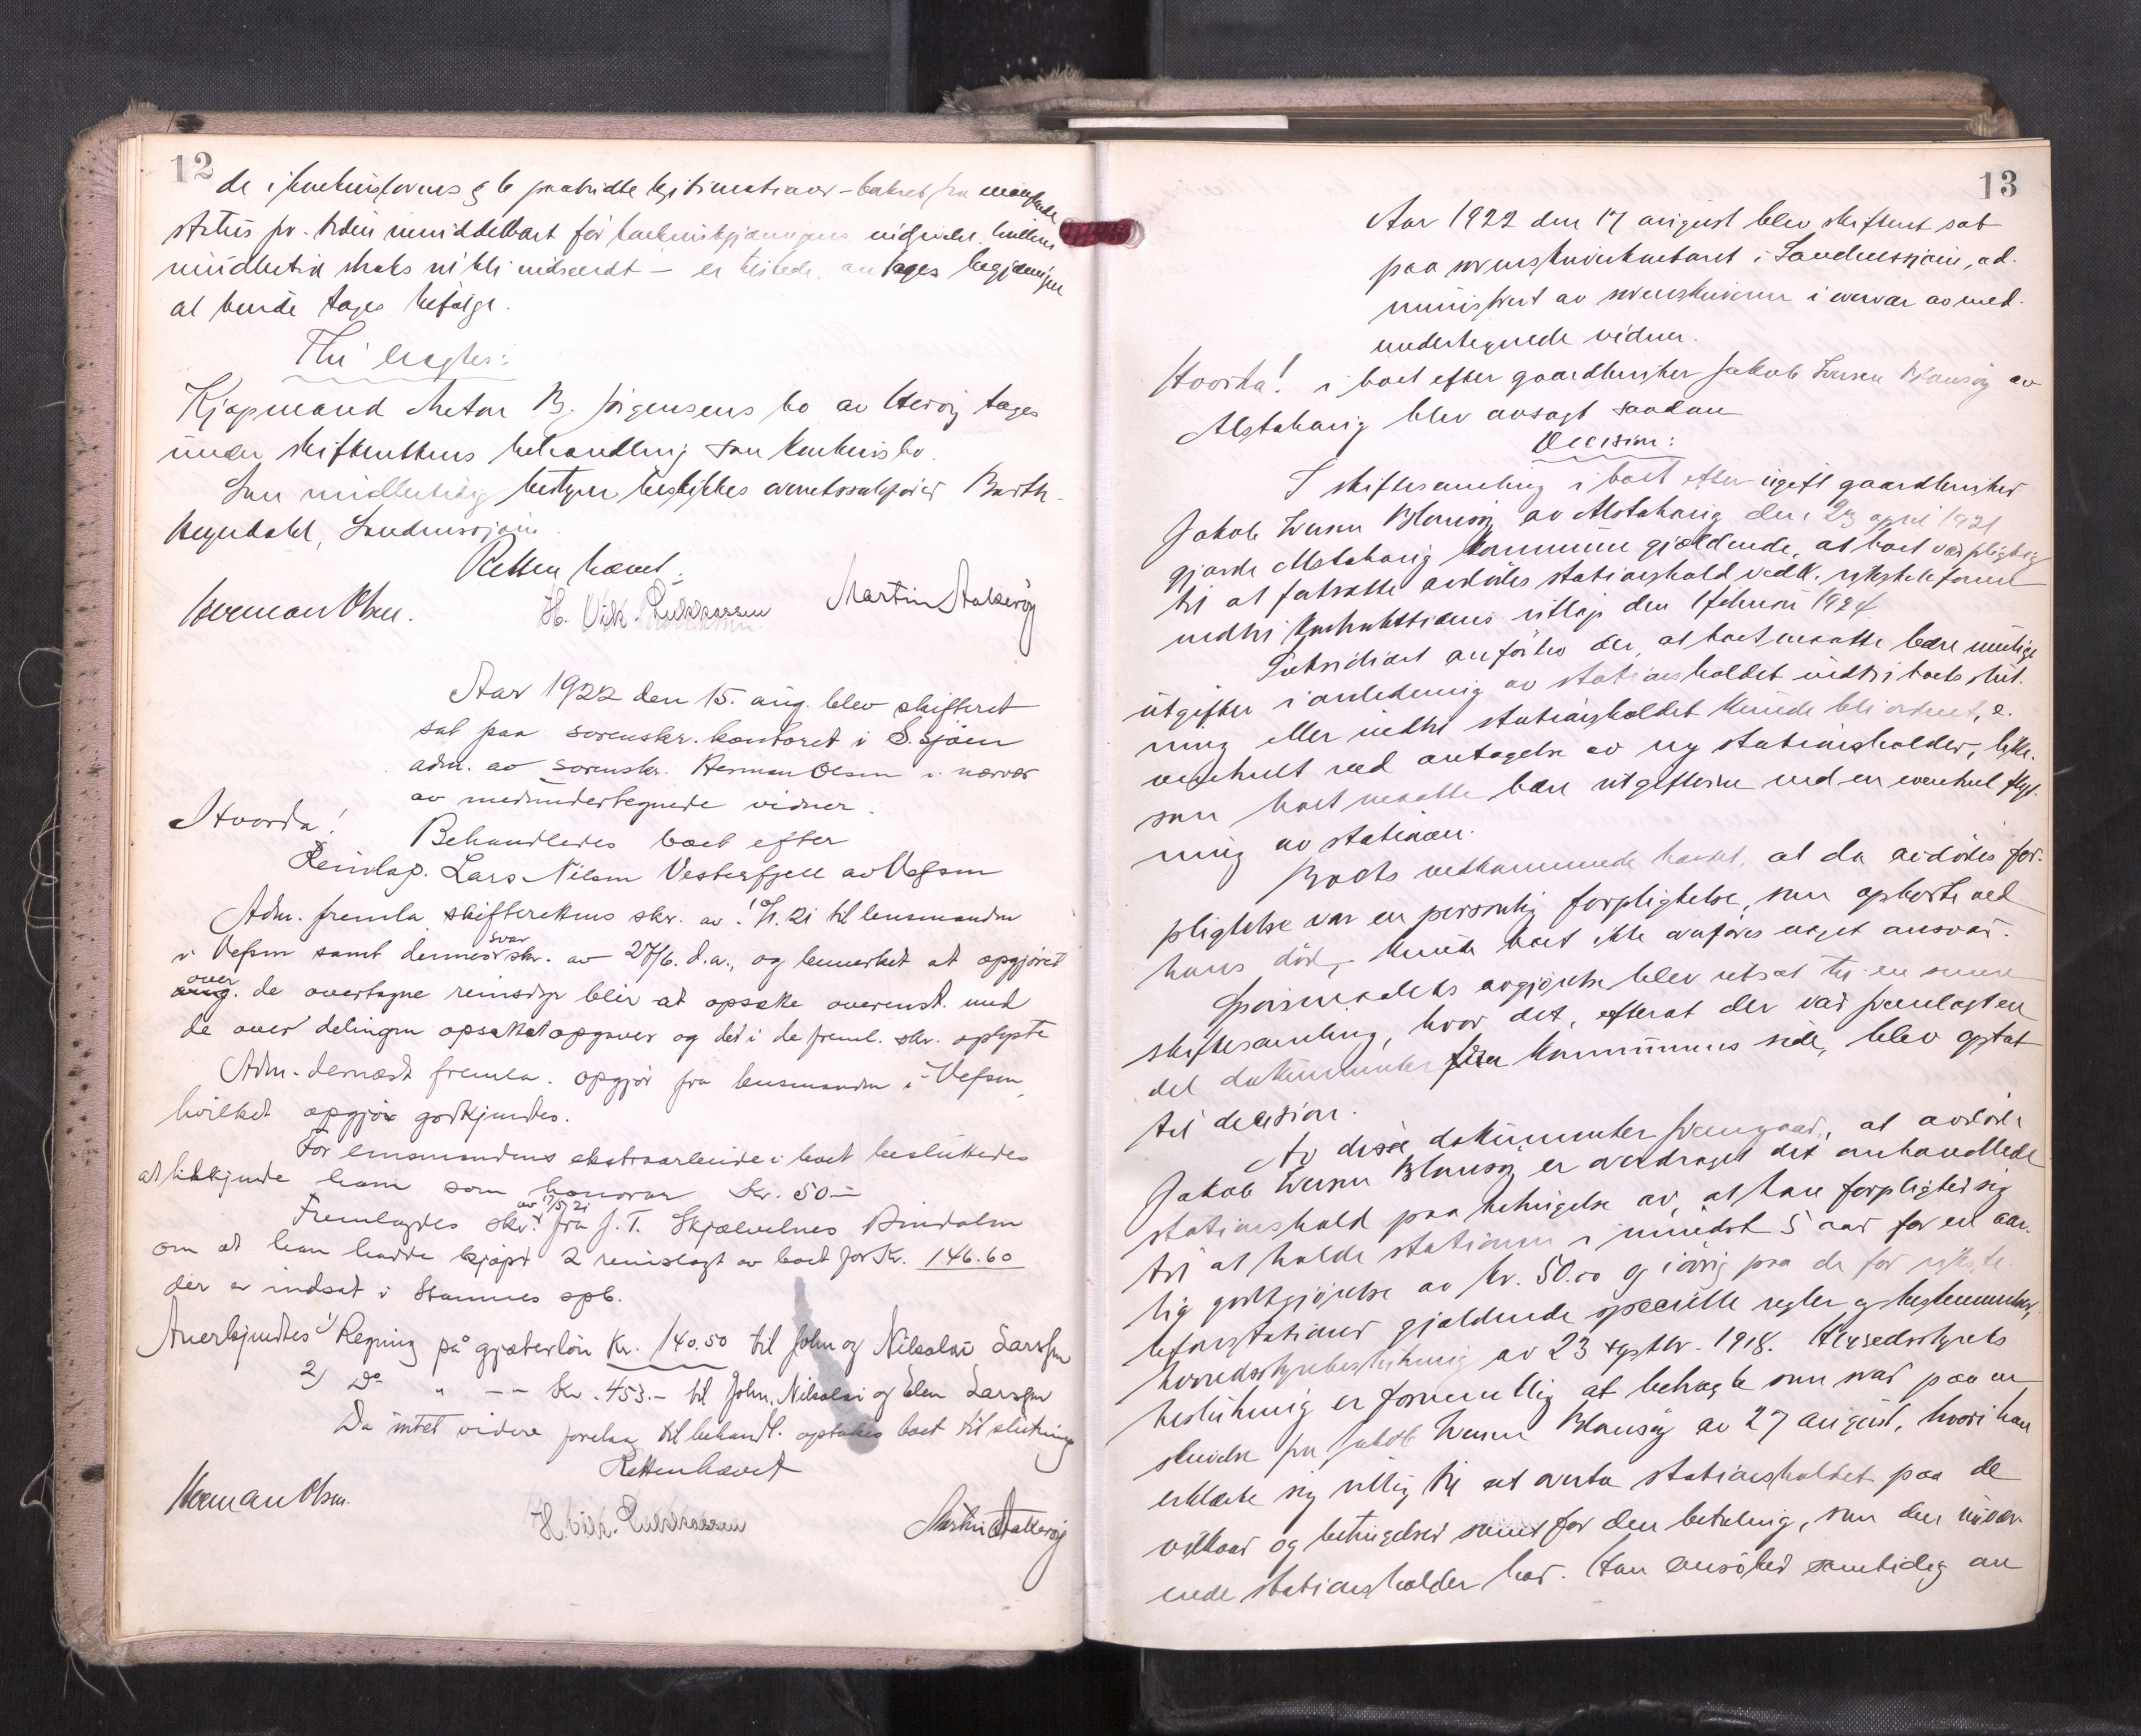 12
de i konkurslovens § 6 paabudte legitimationer - bakset fra
status pr. tiden umiddelbart før konkursbegjæringens
midlertid straks vil bli indsendt - er tilstede, antages begjæringen
at burde tages tilfølge.
Thi eragtes:
Kjøpmand Anton B. Jørgensens bo av Herøy tages
under skifterettens behandling som konkursbo.
Som midlertidig bestyrer beskikkes overretssakfører Barth-
Heyerdahl, Sandnessjøen.
Retten hævet.
Herman Olsen. H. Vilk. Lukkassen Martin Stokkerøy
Aar 1922 den 15. aug. blev skifteret
sat paa sorenskr. kontoret i S.sjøen
adm. av sorenskr. Herman Olsen i nærvær
av medundertegnede vidner.
Hvorda!
Behandledes boet efter
Reinlap. Lars Nilsen Vesterfjell av Vefsen
Adm. fremla skifterettens skr. av 21 til lensmanden
i Vefsen samt dennes svarskr. av 27/6. d.a., og bemerket at opgjøret
over de overtagne reinsdyr blir at opsætte overenst. med
de over delingen opsattet opgaver og det i de freml. skr. oplyste
Adm. dernæst fremla opgjør fra lensmanden i Vefsen,
hvilket opgjør godkjendtes.
For lensmandens ekstraarbeide i boet besluttedes
at tilkjende ham som honorar Kr. 50 -
Fremlagdes skr. av 17/5 21 fra J. T. Skjælvelnes Dindalen
om at han hadde kjøpt 2 reinslagt av boet for Kr. 146.60
der er indsat i Stamnes spb.
Anerkjendtes 1) Regning på gjæterløn Kr. 140.50 til John og Nikolai Larsen
2) Do " - - Kr. 453.- til John, Nikolai og Elen Larsen
Da intet videre forelaa til behandl. optokes boet til slutning
Retten hævet
Herman Olsen. H. Vilk. Lukkassen Martin Stokkerøy
13
Aar 1922 den 17 august blev skifteret sat
paa sorenskriverkontoret i Sandnessjøen, ad-
ministrert av sorenskriveren i overvær av med-
undertegnede vidner.
Hvorda! i boet efter gaardbruker Jakob Iversen Blomsøy av
Alstahaug blev avsagt saadan
Decision:
I skiftesamling i boet efter ugift gaardbruker
Jakob Iversen Blomsøy av Alstahaug den 23 april 1921
gjorde Alstahaug kommune gjældende, at boet var pligtig
til at fortsætte avdødes stationshold vedk. rikstelefonen
indtil kontraktstidens utløp den 1 februar 1924.
Subsidiært anførtes der, at boet maatte bære mulige
utgifter i anledning av stationsholdet indtil boets slut-
ning eller indtil stationsholdet kunde bli ordnet, e-
ventuelt ved antagelse av ny stationsholder, like-
som boet maatte bære utgifterne ved en eventuel flyt-
ning av stationen.
Boets vedkommende hævdet, at da avdødes for-
pligtelse var en personlig forpligtelse, som ophørte ved
hans død, kunde boet ikke aværes noget ansvar.
Spørsmaalets avgjørelse blev utsat til en senere
skiftesamling, hvor det, efterat der var fremlagt en
del dokumenter fra kommunens side, blev optat
til decision.
Av disse dokumenter fremgaar, at avdøde
Jakob Iversen Blomsøy er overdraget det omhandlede
stationshold paa betingelse av, at han forpligtet sig
til at holde stationen i mindst 5 aar for en aar-
lig godtgjørelse av kr. 50.00 og iøvrig paa de for rikste-
lefonstationer gjældende specielle regler og bestemmelser,
herredsstyrebeslutning av 23 septbr. 1918. Herredsstyrets
beslutning er formentlig at betragte som svar paa en
skrivelse fra Jakob Iversen Blomsøy av 27 august, hvori han
erklærte sig villig til at overta stationsholdet paa de
vilkaar og betingelser samt for den betaling, som den nuvær-
ende stationsholder har. Han ansøker samtidig om